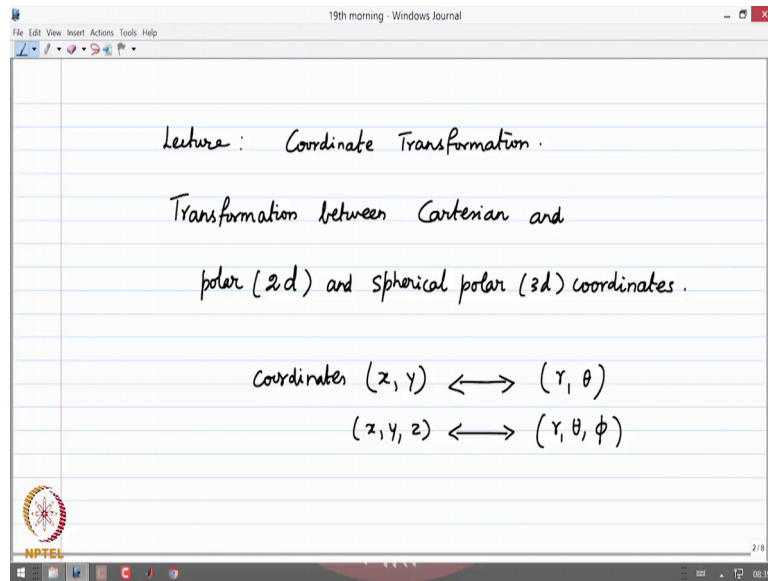 19th morning - Windows Journal
File Edit View Insert Actions Tools Help
Lecture: Coordinate Transformation.
Transformation between Cartesian and
polar (2d) and spherical polar (3d) coordinates.
coordinates (x, y) ⟷ (r, θ)
(x, y, z) ⟷ (r, θ, ϕ)
NPTEL
2/8